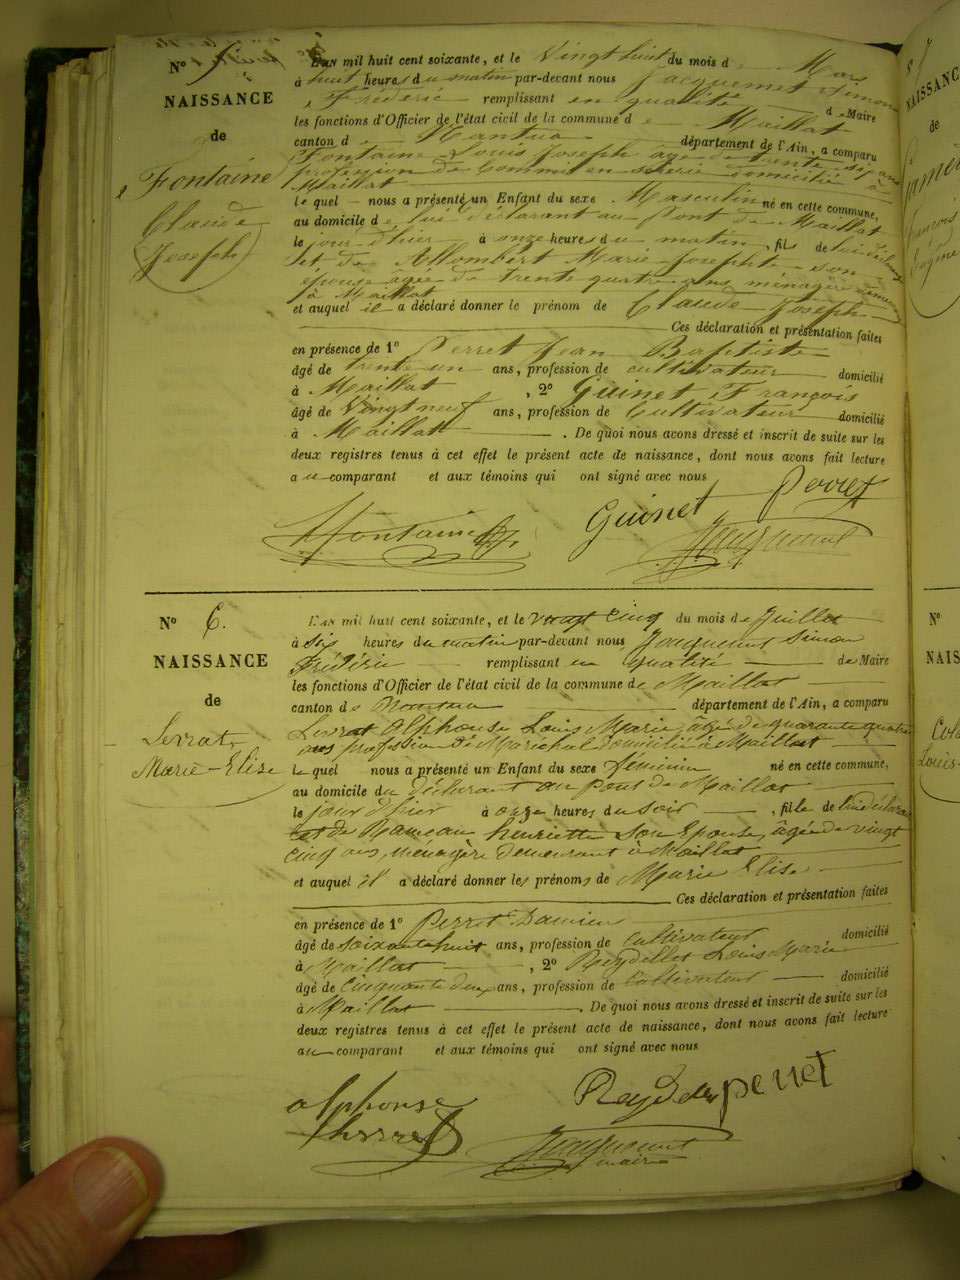 N° 5
NAISSANCE
de
Fontaine
Claude
Joseph
L'AN mil huit cent soixante, et le Vingt huit du mois de Mars
à huit heures du matin par-devant nous Jacquemet Simon
Frédéric remplissant en qualité de Maire
les fonctions d'Officier de l'état civil de la commune de Maillat
canton de Nantua département de l'Ain, a comparu
Fontaine Louis Joseph âgé de trente six ans
profession de domicilié à
Maillat
le quel nous a présenté un Enfant du sexe Masculin né en cette commune,
au domicile de lui déclarant au Pont de Maillat
le jour d'hier à onze heures du matin, fils de lui déclarant
et de Allombert Marie Josephte son
épouse âgée de trente quatre ans ménagère
à Maillat
et auquel il a déclaré donner le prénom de Claude Joseph
Ces déclaration et présentation faites
en présence de 1° Perret Jean Baptiste
âgé de trente un ans, profession de cultivateur domicilié
à Maillat, 2° Guinet François
âgé de Vingt neuf ans, profession de Cultivateur domicilié
à Maillat. De quoi nous avons dressé et inscrit de suite sur les
deux registres tenus à cet effet le présent acte de naissance, dont nous avons fait lecture
au comparant et aux témoins qui ont signé avec nous
Fontaine Guinet Perret
Jacquemet
N° 6.
NAISSANCE
de
Serrat
Marie-Elise
L'AN mil huit cent soixante, et le vingt cinq du mois de Juillet
à six heures du matin par-devant nous Jacquemet Simon
Frédéric remplissant en qualité de Maire
les fonctions d'Officier de l'état civil de la commune de Maillat
canton de Nantua département de l'Ain, a comparu
Serrat Alphonse Louis Marie âgé de quarante quatre
ans profession de Maréchal domicilié à Maillat
le quel nous a présenté un Enfant du sexe féminin né en cette commune,
au domicile du déclarant au Pont de Maillat
le jour d'hier à onze heures du soir, fille de lui déclarant
et de Rameau henriette son Epouse, âgée de vingt
cinq ans, ménagère demeurant à Maillat
et auquel il a déclaré donner les prénoms de Marie Elise
Ces déclaration et présentation faites
en présence de 1° Perret Damien
âgé de soixante huit ans, profession de Cultivateur domicilié
à Maillat, 2° Reydellet Louis Marie
âgé de cinquante deux ans, profession de Cultivateur domicilié
à Maillat. De quoi nous avons dressé et inscrit de suite sur les
deux registres tenus à cet effet le présent acte de naissance, dont nous avons fait lecture
au comparant et aux témoins qui ont signé avec nous
alphonse Reydellet perret
Jacquemet
maire
NAISSANCE
de
N°
NAIS
Louis-